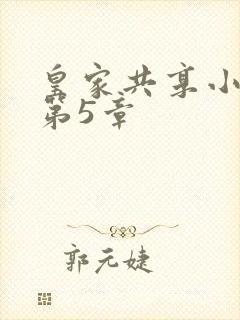 皇家共享小
第5章
郭元婕